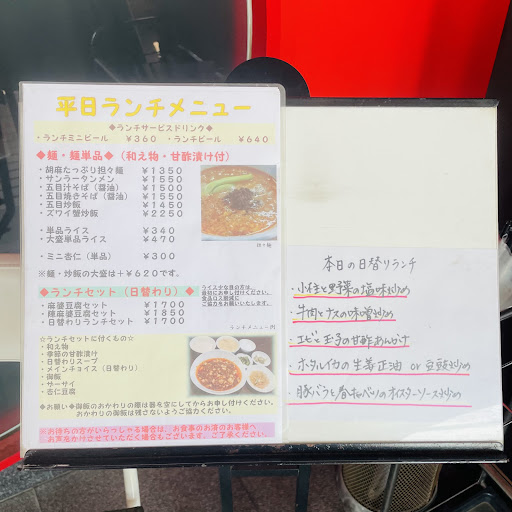 平日ランチメニュー
◆ランチサービスドリンク◆
・ランチミニビール ￥360 ・ランチビール ￥640
◆麺・麺単品◆（和え物・甘酢漬け付）
・胡麻たっぷり担々麺 ￥1350
・サンラータンメン ￥1550
・五目汁そば（醤油） ￥1500
・五目焼きそば（醤油） ￥1550
・五目炒飯 ￥1450
・ズワイ蟹炒飯 ￥2250
・単品ライス ￥340
・大盛単品ライス ￥470
・ミニ杏仁（単品） ￥300
※麺・炒飯の大盛は＋￥620です。
担々麺
ライス少な目の方は、
食品ロス削減に
ご協力をお願いいたします。
◆ランチセット（日替わり）◆
・麻婆豆腐セット ￥1700
・陳麻婆豆腐セット ￥1850
・日替わりランチセット ￥1700
ランチメニュー例
☆ランチセットに付くもの☆
・和え物
・季節の甘酢漬け
・日替わりスープ
・メインチョイス（日替わり）
・御飯
・ザーサイ
・杏仁豆腐
◆お願い◆御飯のおかわりの際は器を空にしてからお申し付けください。
おかわりの御飯は残さないようご協力ください。
※お待ちの方がいらっしゃる場合は、お食事のお済のお客様へ
お声をかけさせていただく場合もございます。ご了承ください。
本日の日替りランチ
・小柱と野菜の塩味炒め
・牛肉とナスの味噌炒め
・エビと玉子の甘酢あんかけ
・ホタルイカの生姜正油 or 豆鼓炒め
・豚バラと春キャベツのオイスターソース炒め